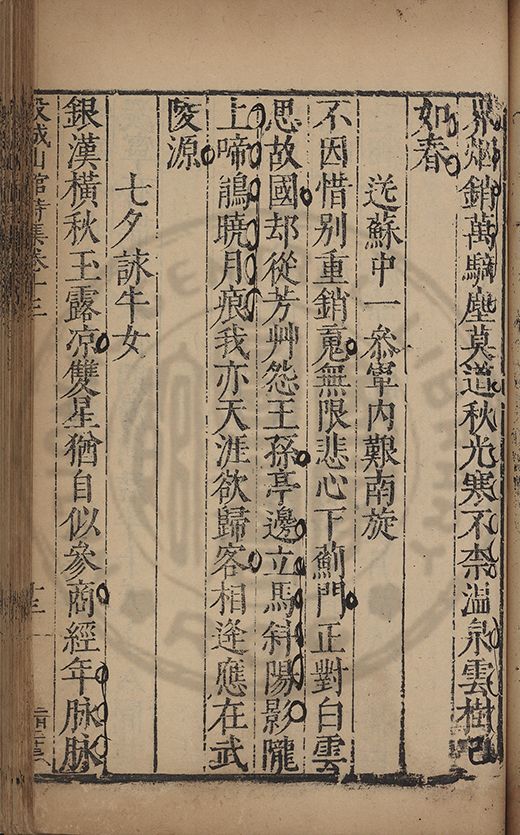 烟銷萬騎塵莫道秋光寒不柰溫泉雲樹已
如春
送蘇中一叅軍内艱南旋
不因惜别重銷魂無限悲心下薊門正對白雲
思故國却從芳艸怨王孫亭邊立馬斜陽影隴
上啼鵑曉月痕我亦天涯欲歸客相逢應在武
陵源
七夕詠牛女
銀漢橫秋玉露凉雙星猶自似參商經年脉脉
城山館詩集卷十三
十三